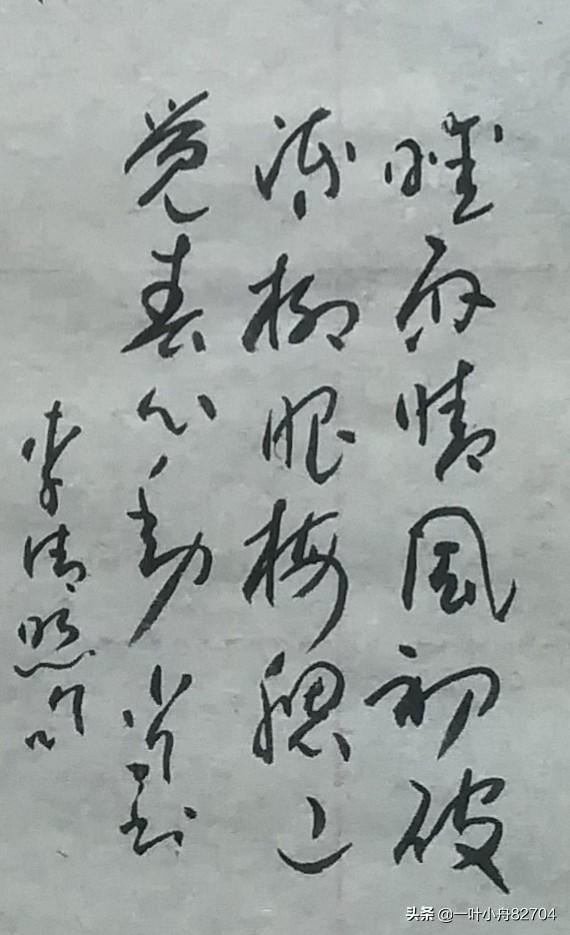 暖雨晴風初破
冻柳眼梅腮已
觉春心動
李清照
头条 @一叶小舟82704